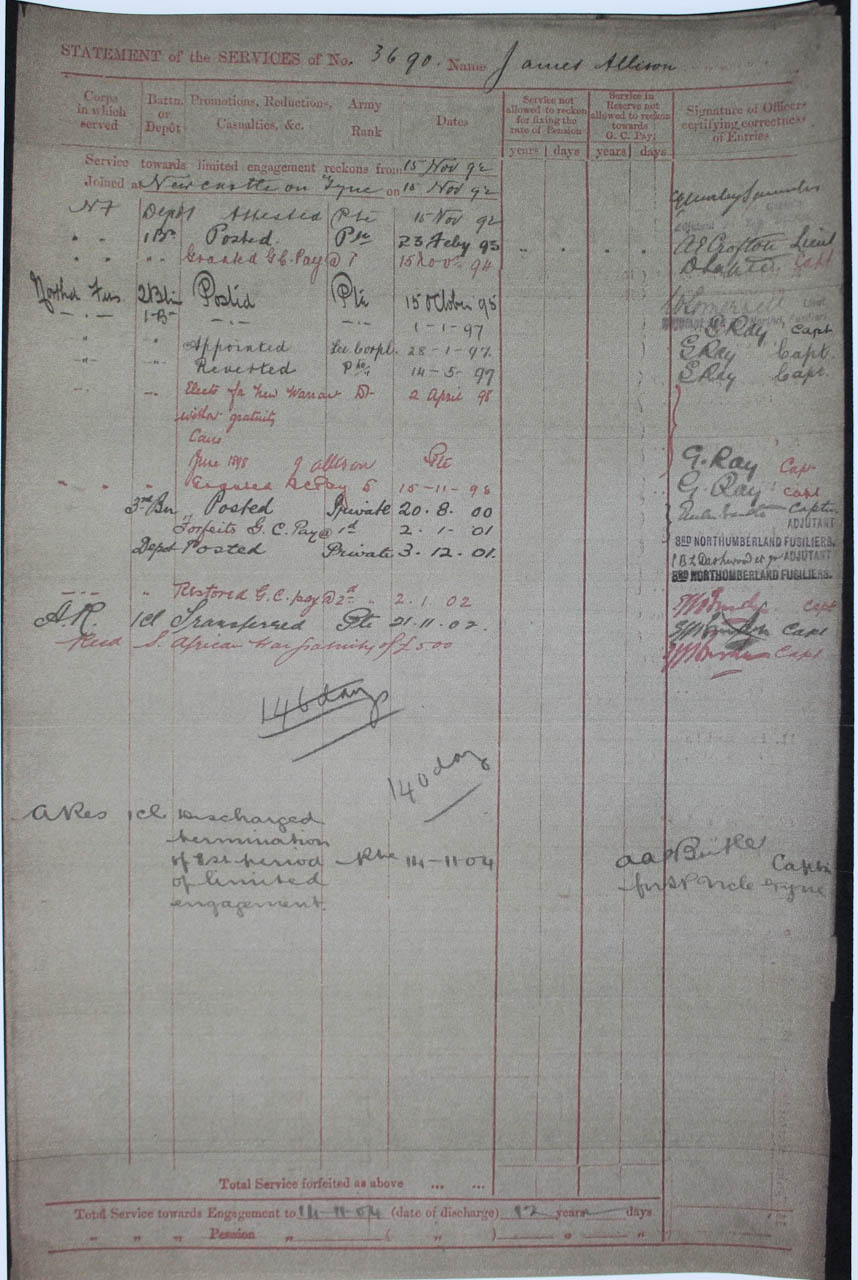 STATEMENT of the SERVICES of No. 3690. Name James Allison
Corps in which served
Battn. or Depôt
Promotions, Reductions, Casualties, &c.
Army Rank
Dates
Service not allowed to reckon for fixing the rate of Pension
Service in Reserve not allowed to reckon towards G. C. Pay
Signature of Officers certifying correctness of Entries
years days years days
Service towards limited engagement reckons from 15 Nov 92
Joined at Newcastle on Tyne on 15 Nov 92
NF Depot Attested Pte 15 Nov 92
" " 1 Bn Posted. Pte 23 Feby 93 A E Crofton Lieut
" " " Granted G.C. Pay @ 15 Nov 94 Capt
Northd Fus. 2 Bn Posted Pte 15 October 95
-"- 1 B- -"- -"- 1-1-97 G Ray Capt
" " Appointed Lce Corpl. 28-1-97 G Ray Capt.
" " Reverted Pte 14-5-97 G Ray Capt.
" 2 April 98
gratuity
June 1898 J Allison Pte G. Ray Capt
" " 15-11-98 G. Ray Capt
3rd Bn Posted Private 20.8.00 Captn
ADJUTANT
Forfeits G.C. Pay @ 1d 2.1.01 3RD NORTHUMBERLAND FUSILIERS.
Depot Posted Private 3.12.01. ADJUTANT
3RD NORTHUMBERLAND FUSILIERS.
-"- " Restored G.C. pay @ 2d " 2.1.02 Capt
A.R. 1cl Transferred Pte 21.11.02. Capt
S. African War gratuity of £5.0.0 Capt
146 days
140 day
A Res 1cl Discharged
termination
of 1st period Pte 14-11-04 Captn
of limited
engagement.
Total Service forfeited as above ... ...
Total Service towards Engagement to 14-11-04 (date of discharge) 12 years days
" " " Pension " ( " ) " "